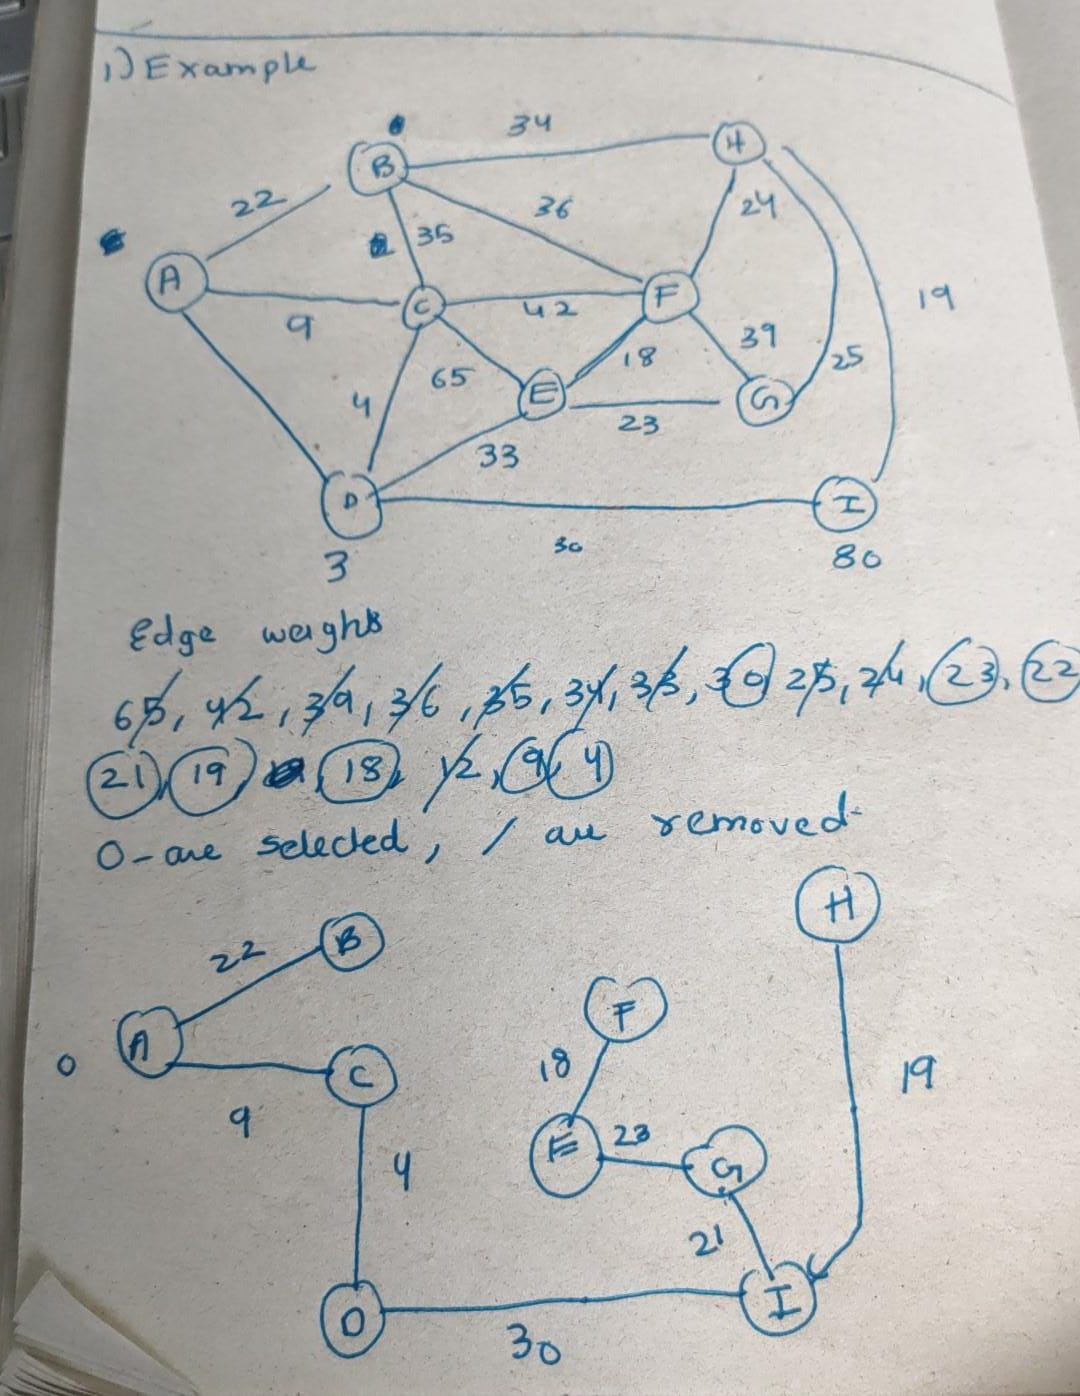 1) Example
34
B
H
22
36
24
35
A
19
9
C
42
F
39
18
25
65
4
E
G
23
33
D
I
30
3
80
Edge weighs
65, 42, 39, 36, 35, 34, 33, 30 25, 24, 23, 22
21, 19, 18, 12, 9, 4
O-are selected, / are removed
H
22
B
F
A
0
18
C
19
9
E
23
G
4
21
D
I
30